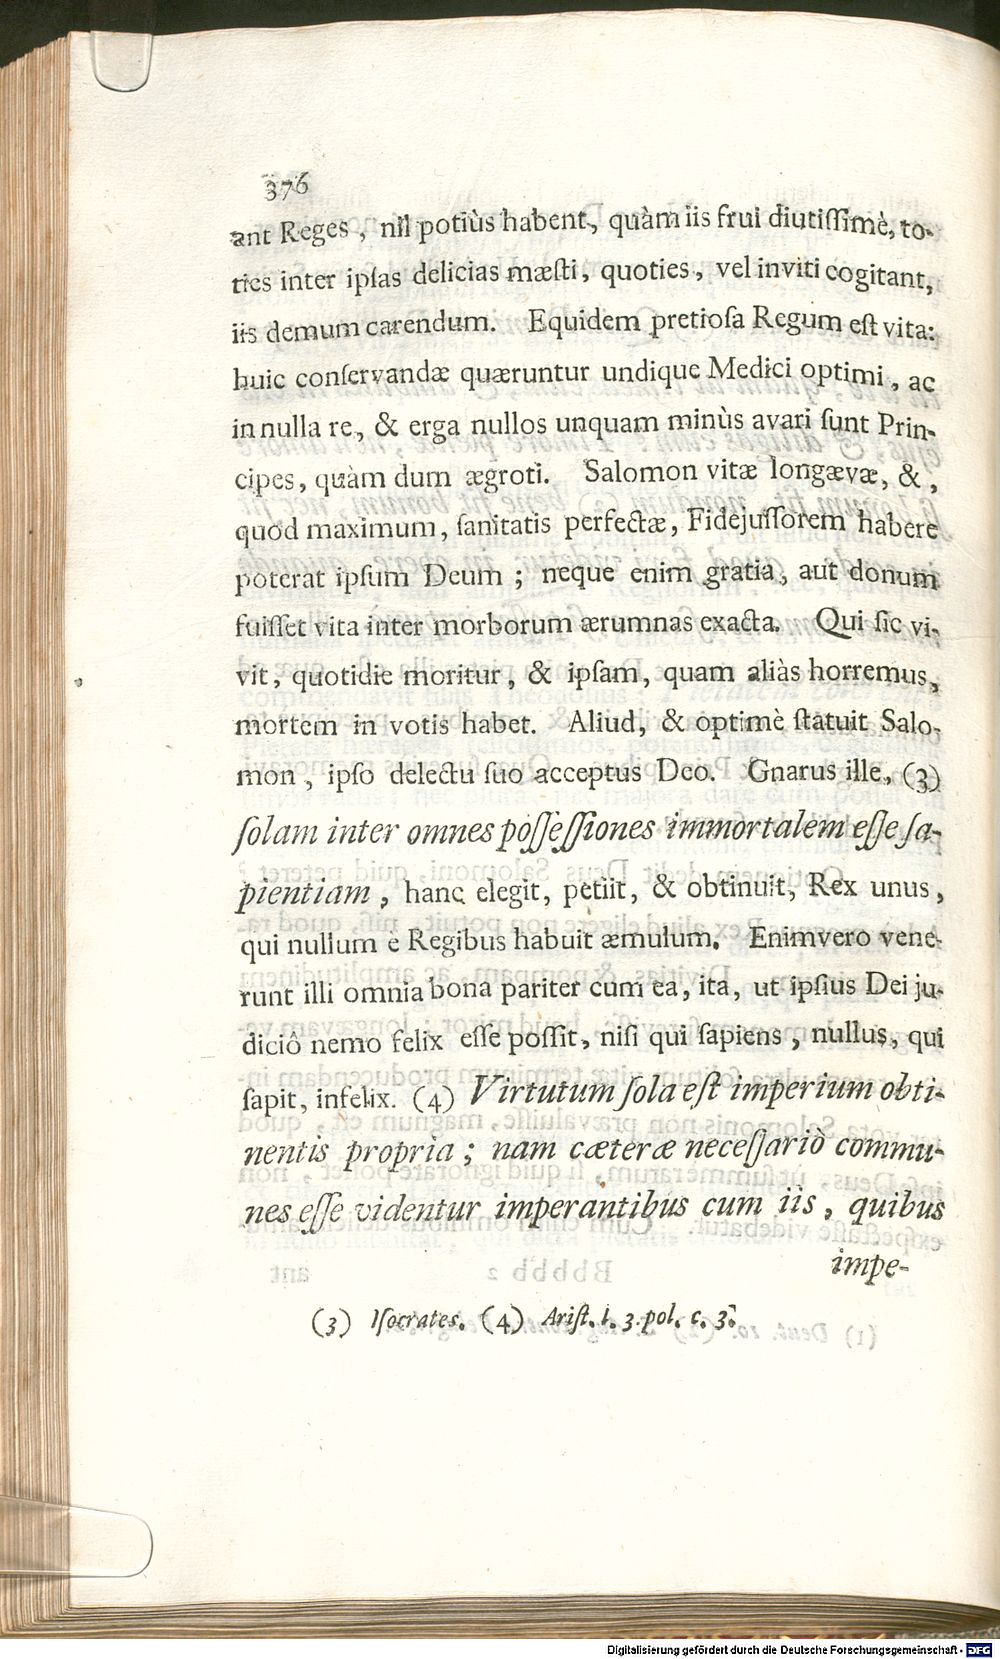 376
ant Reges, nil potiùs habent, quàm iis frui diutiſſimè, to-
ties inter ipſas delicias mæſti, quoties, vel inviti cogitant,
iis demum carendum. Equidem pretioſa Regum eſt vita:
huic conſervandæ quæruntur undique Medici optimi, ac
in nulla re, & erga nullos unquam minùs avari ſunt Prin-
cipes, quàm dum ægroti. Salomon vitæ longævæ, &,
quod maximum, ſanitatis perfectæ, Fidejuſſorem habere
poterat ipſum Deum; neque enim gratia, aut donum
fuiſſet vita inter morborum ærumnas exacta. Qui ſic vi-
vit, quotidie moritur, & ipſam, quam aliàs horremus,
mortem in votis habet. Aliud, & optimè ſtatuit Salo-
mon, ipſo delectu ſuo acceptus Deo. Gnarus ille, (3)
ſolam inter omnes poſſeſſiones immortalem eſſe ſa-
pientiam, hanc elegit, petiit, & obtinuit, Rex unus,
qui nullum e Regibus habuit æmulum. Enimvero vene-
runt illi omnia bona pariter cum ea, ita, ut ipſius Dei ju-
diciô nemo felix eſſe poſſit, niſi qui ſapiens, nullus, qui
ſapit, infelix. (4) Virtutum ſola eſt imperium obti-
nentis propria; nam cæteræ neceſſariò commu-
nes eſſe videntur imperantibus cum iis, quibus
impe-
(3) Iſocrates. (4) Ariſt. l. 3. pol. c. 3.
Digitalisierung gefördert durch die Deutsche Forschungsgemeinschaft - DFG